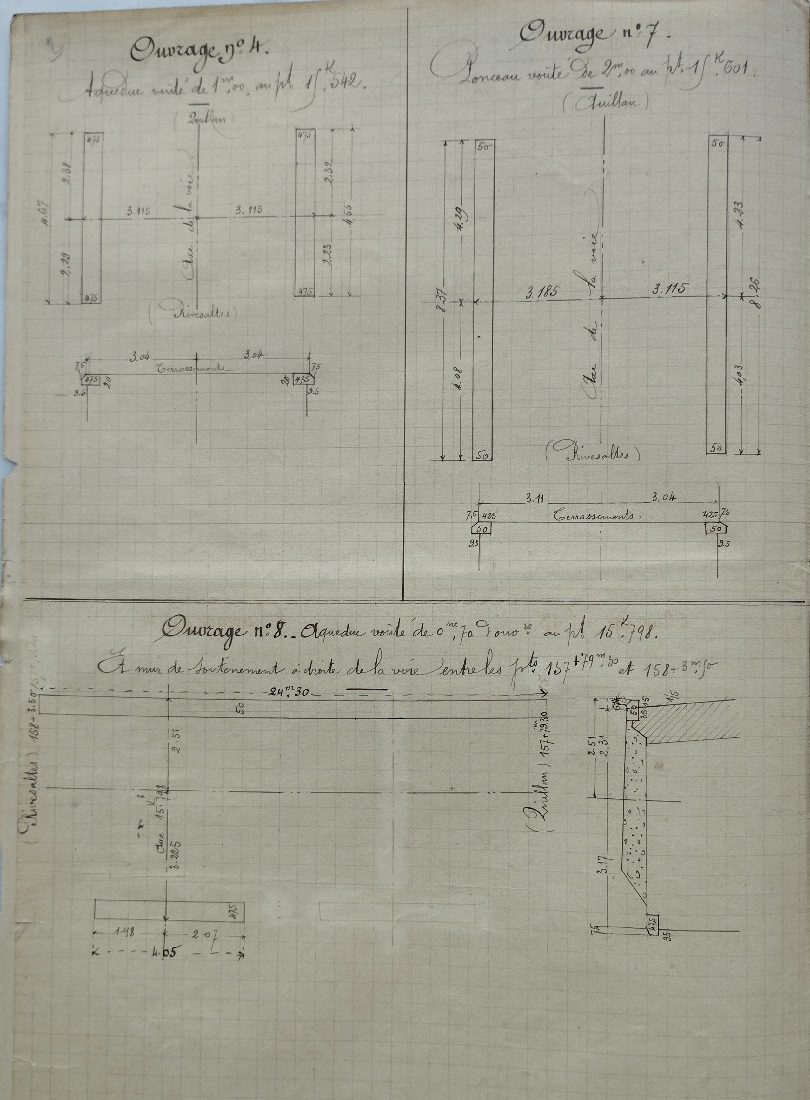 Ouvrage n° 4.
Aqueduc voûté de 1m,00 au pt. 15K.542.
(Quillan)
475
475
2.38
4.67
2.29
3.115
3.115
Axe de la voie
2.32
4.55
2.23
475
475
(Rivesaltes)
3.04
3.04
7.5
Terrassements
7.5
475
20
20
475
9.5
9.5
Ouvrage n° 7.
Ponceau voûté de 2m,00 au pt. 15K.601.
(Quillan)
50
50
4.29
8.37
4.08
3.185
3.115
Axe de la voie
4.23
8.26
4,03
50
50
(Rivesaltes)
3.11
3.04
7,5
425
Terrassements.
425
7.5
50
50
9.5
9.5
Ouvrage n° 8. Aqueduc voûté de 0m,70 au pt. 15K.798.
Et mur de soutènement à droite de la voie entre les pts 157+79m.30 et 158+3m,50
24m.30
50
(Rivesaltes) 158+3.50
2.51
Axe 15K.798
3.225
(Quillan) 157+79.30
475
1.98
2.07
4.05
50
2.51
2.31
3.17
75
475
95